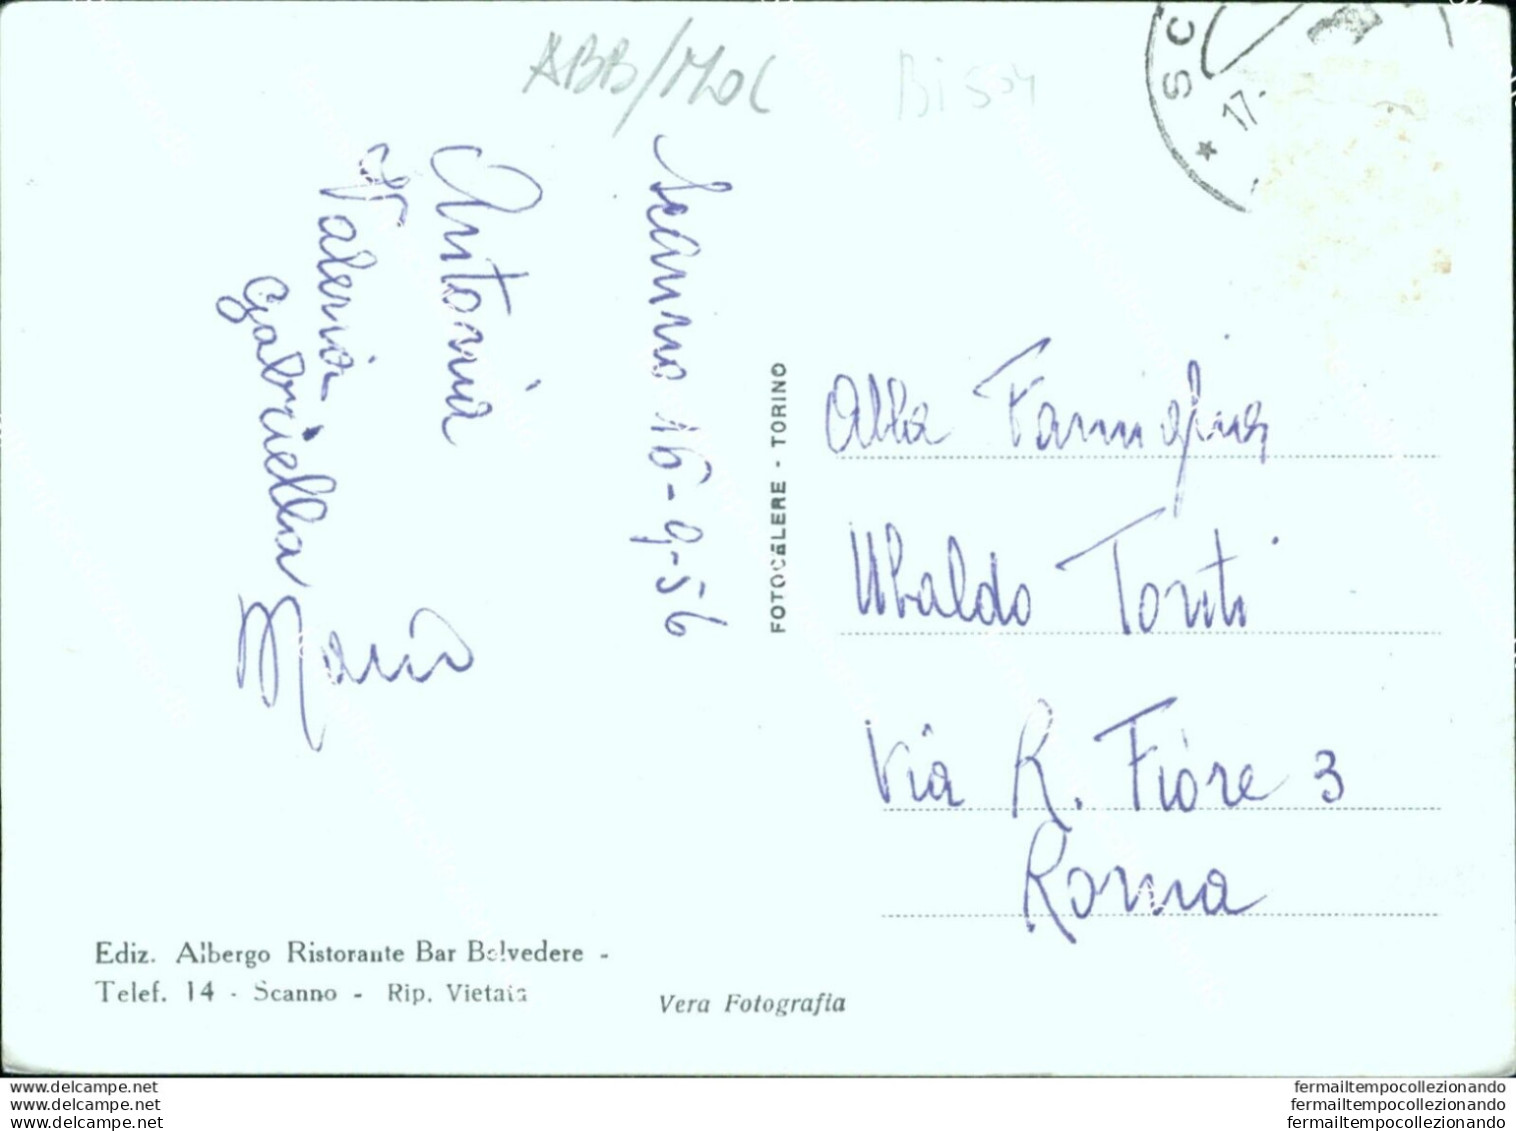 ABB/MOL
Bi504
SC
* 17.
Scanno 16-9-56
Antonia
Valeria
Gabriella
Maria
FOTOCELERE - TORINO
Alla Famiglia
Ubaldo
Via R. Fiore 3
Roma
Ediz. Albergo Ristorante Bar Belvedere -
Telef. 14 - Scanno - Rip. Vietata
Vera Fotografia
www.delcampe.net
www.delcampe.net
www.delcampe.net
fermailtempocollezionando
fermailtempocollezionando
fermailtempocollezionando